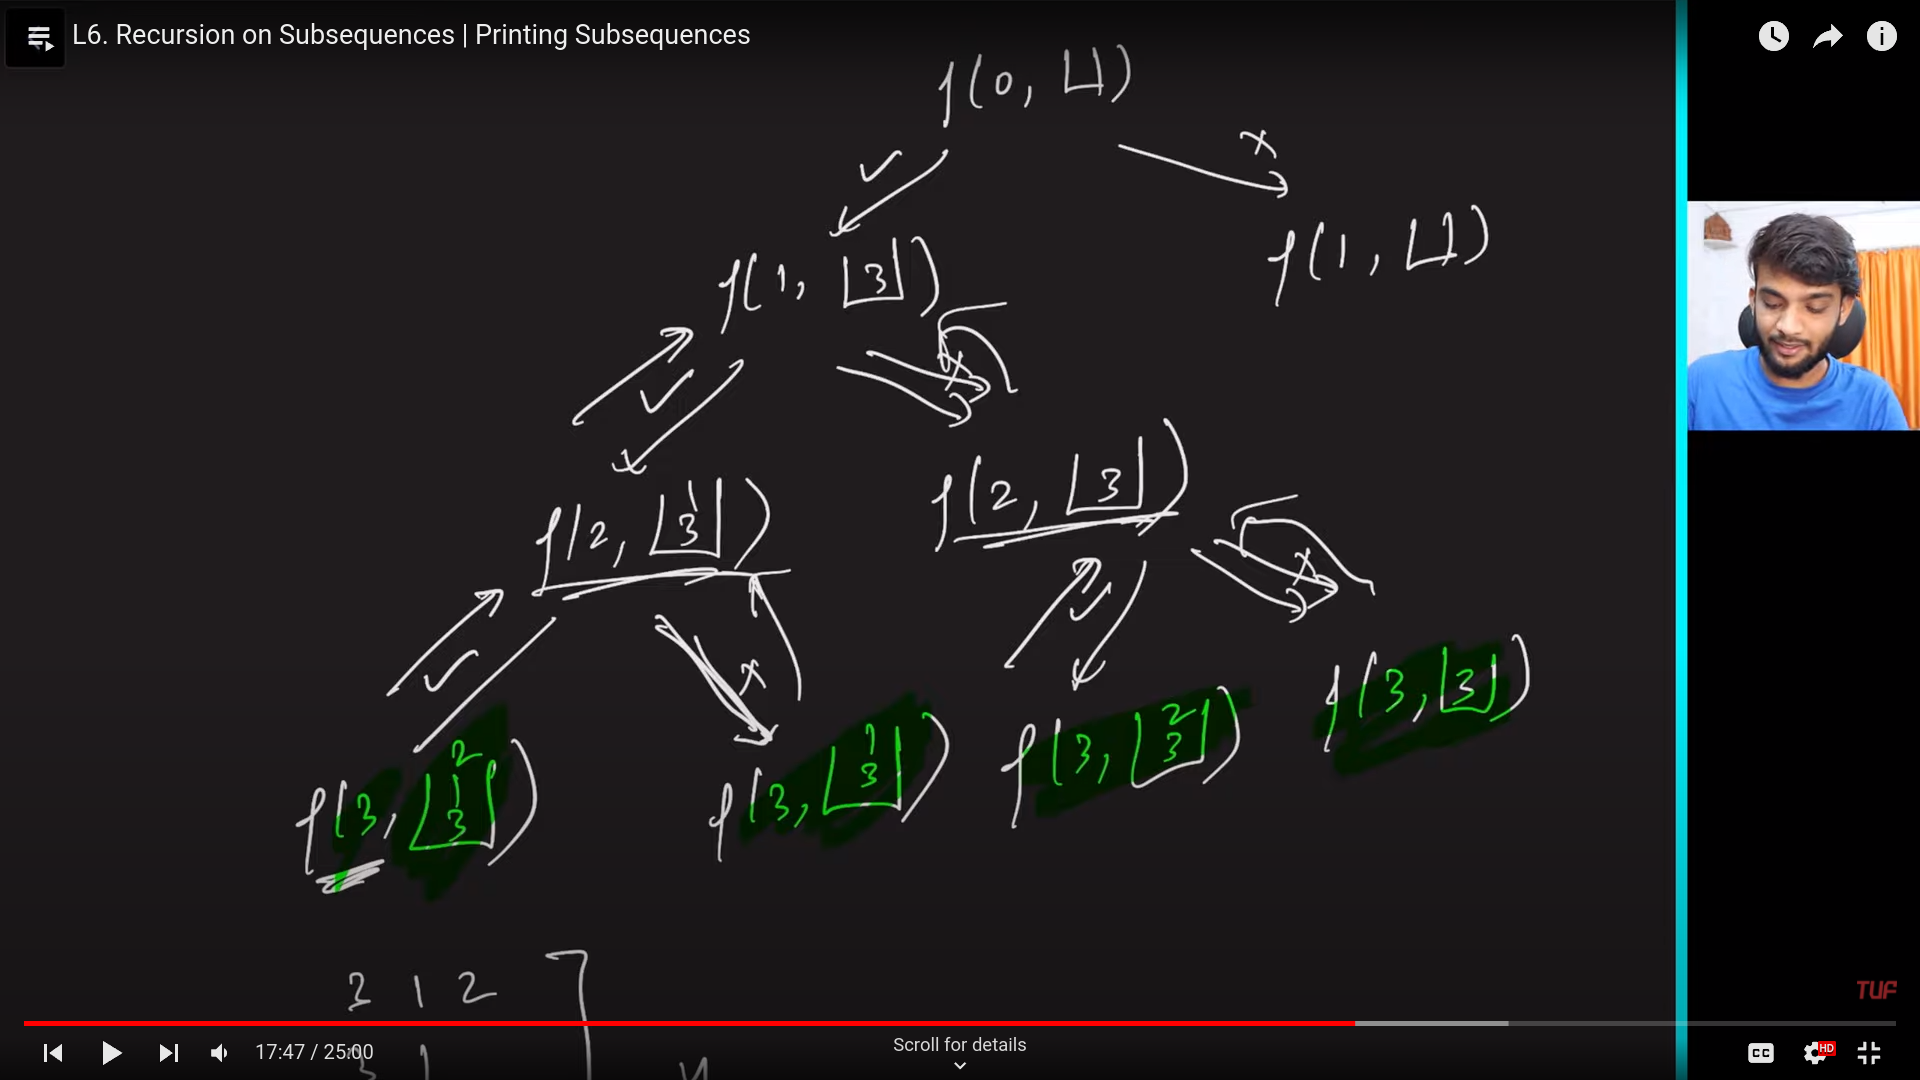 L6. Recursion on Subsequences | Printing Subsequences
f(0, [])
✓ x
f(1, [3]) f(1, [])
✓ x
f(2, [1 3]) f(2, [3])
✓ x ✓ x
f(3, [2 1 3]) f(3, [1 3]) f(3, [2 3]) f(3, [3])
3 1 2
3 1
TUF
17:47 / 25:00
Scroll for details
CC
HD